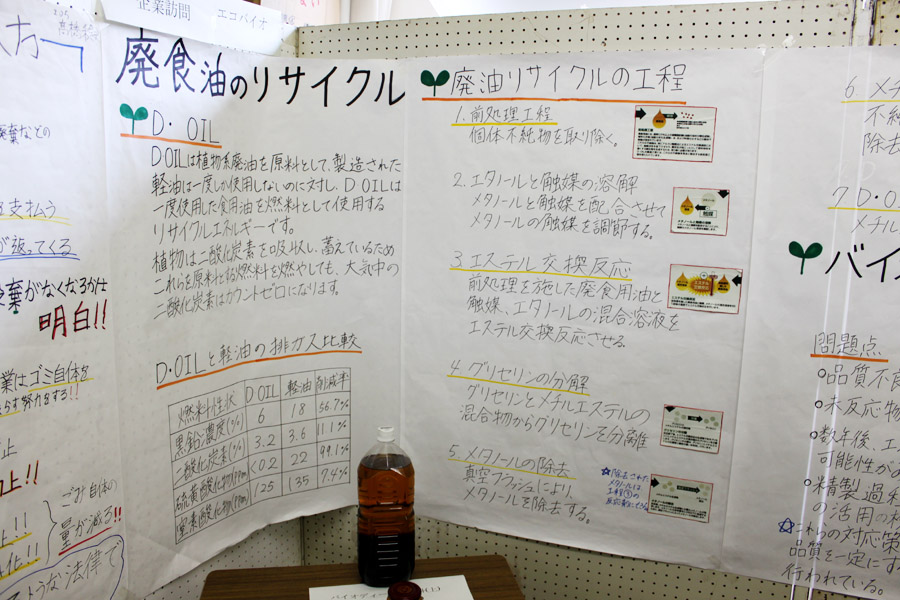 企業訪問
エコバイオ
廃棄などの
支払う
が返ってくる
棄がなくなるか
明白!!
業はゴミ自体を
らす努力をする!!
止
止!!
ごみ自体の
量が減る!!
ような法律で
廃食油のリサイクル
D・OIL
D OILは植物系廃油を原料として、製造された
軽油は一度しか使用しないのに対し、D OILは
一度使用した食用油を燃料として使用する
リサイクルエネルギーです。
植物は二酸化炭素を吸収し、蓄えているため
これらを原料とする燃料を燃やしても、大気中の
二酸化炭素はカウントゼロになります。
D・OILと軽油の排ガス比較
燃料性状 D OIL 軽油 削減率
黒鉛濃度(%) 6 18 56.7%
二酸化炭素(%) 3.2 3.6 11.1%
硫黄酸化物(ppm) <0.2 22 99.1%
窒素酸化物(ppm) 125 135 7.4%
廃油リサイクルの工程
1. 前処理工程
個体不純物を取り除く。
2. エタノールと触媒の溶解
メタノールと触媒を配合させて
メタノールの触媒を調節する。
3. エステル交換反応
前処理を施した廃食用油と
触媒、エタノールの混合溶液を
エステル交換反応させる
4. グリセリンの分解
グリセリンとメチルエステルの
混合物からグリセリンを分離
5. メタノールの除去
真空フラッシュにより、
メタノールを除去する。
除去された
メタノールは
6. メチ
不純
除去
7. D・O
メチル
バイ
問題点
品質不良
未反応物
数年後、エ
可能性が
精製過
の活用の
これらの対応策
品質を一定にす
行われている。